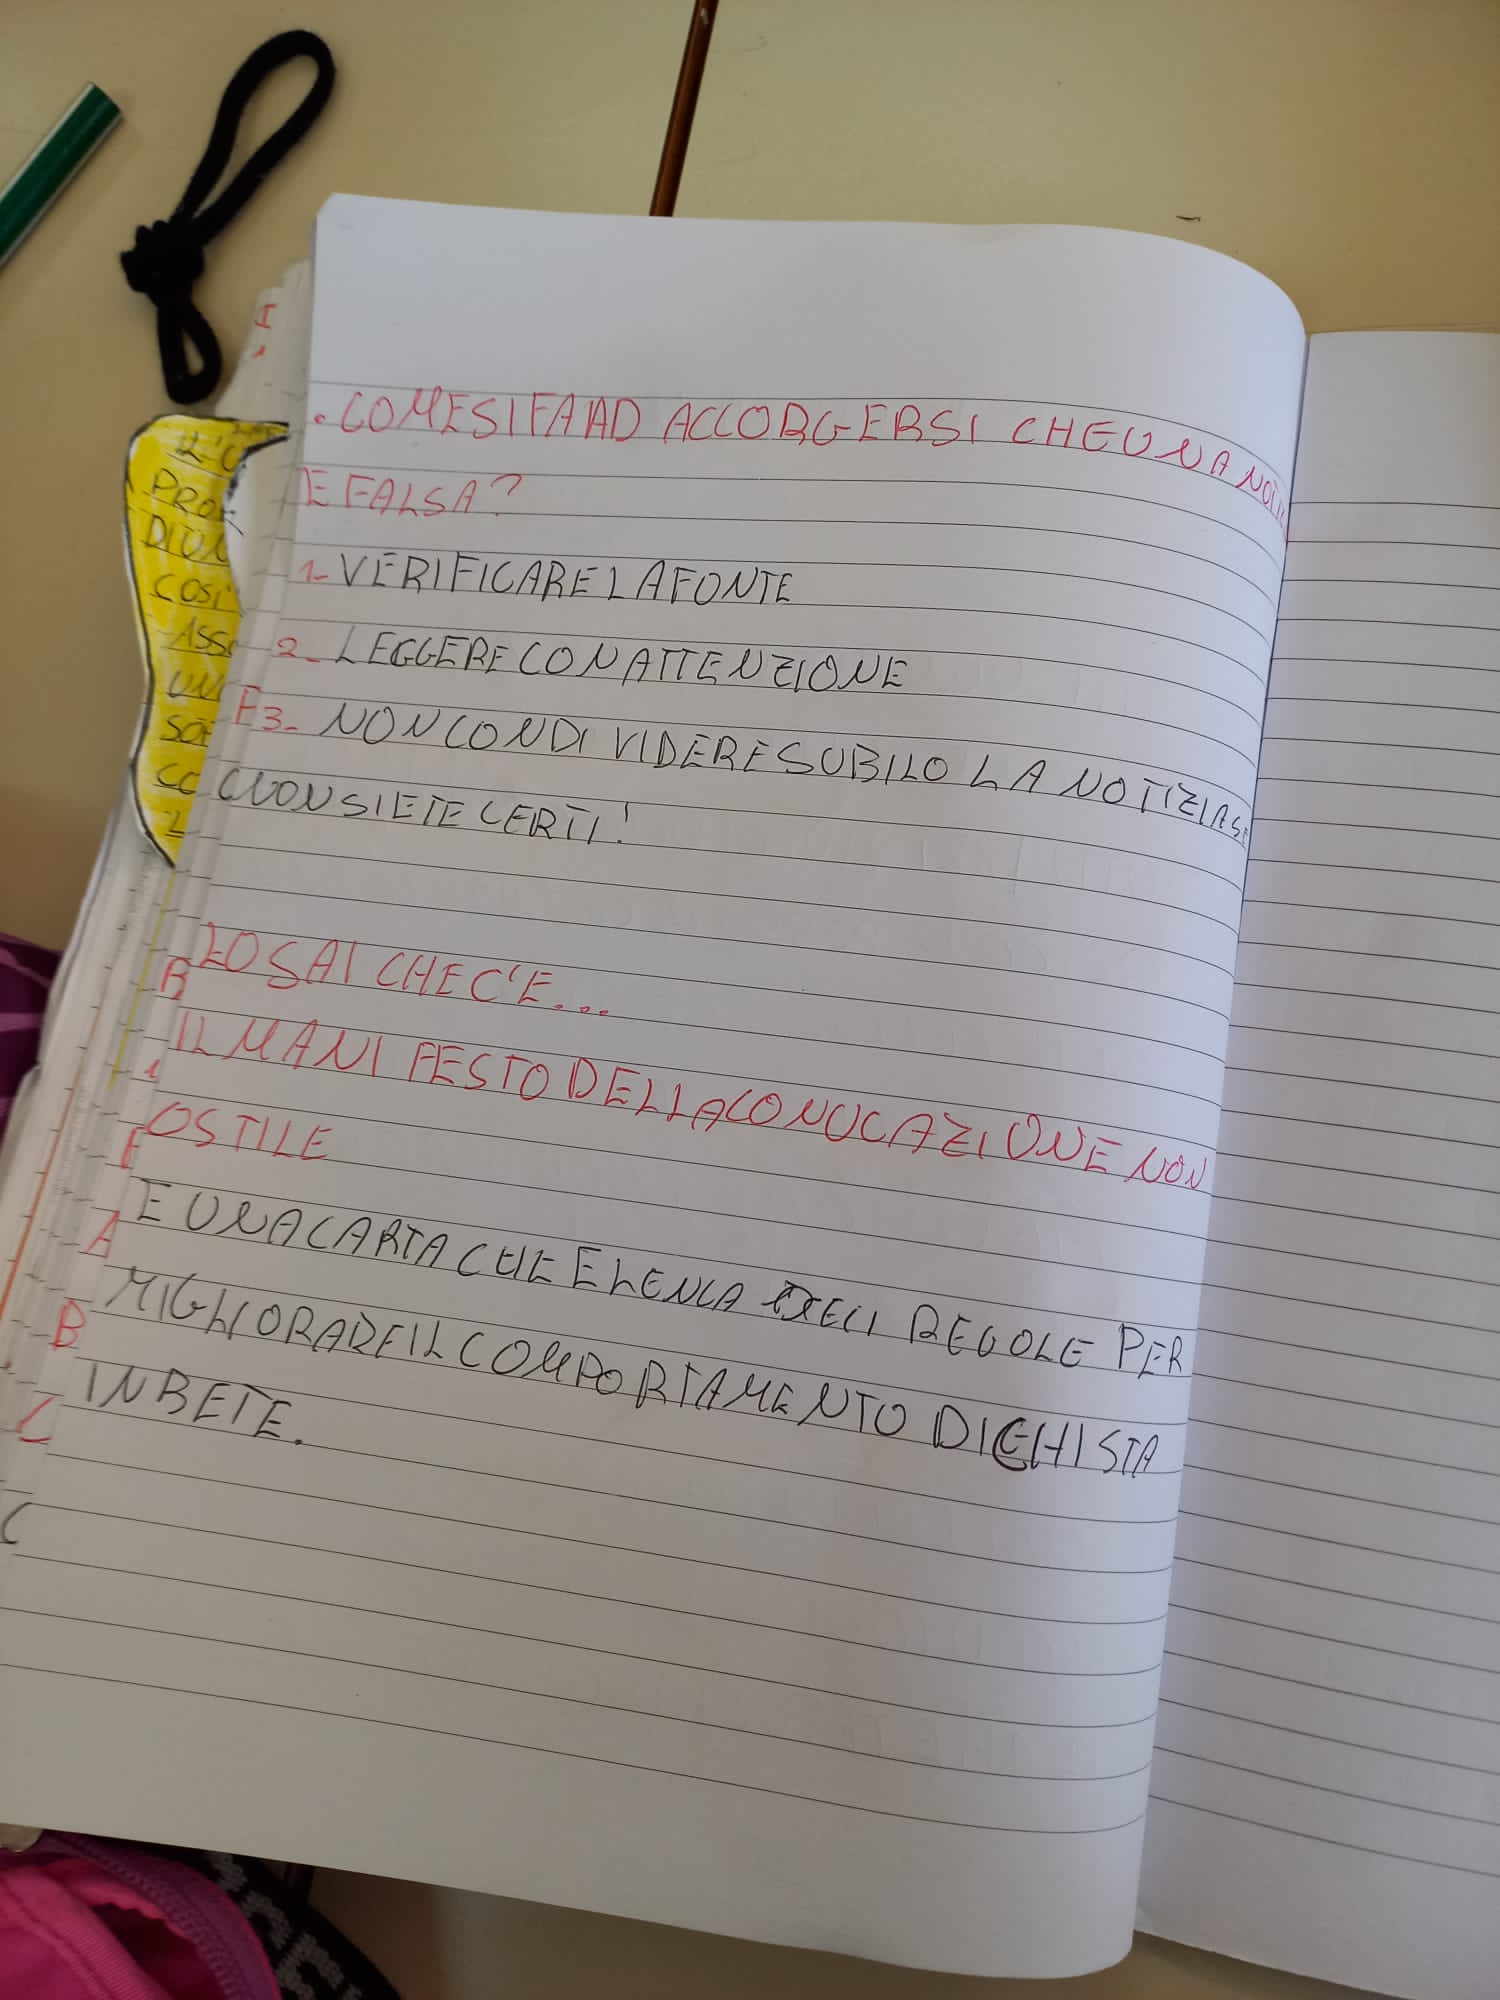 . COME SI FA AD ACCORGERSI CHE UNA NOTIZ
E FALSA?
1- VERIFICARE LA FONTE
2- LEGGERE CON ATTENZIONE
3- NON CONDIVIDERE SUBITO LA NOTIZIA SE
NON SIETE CERTI!
LO SAI CHE C'E...
IL MANIFESTO DELLA CONUCAZIONE NON
OSTILE
E UNA CARTA CHE ELENCA DIECI REGOLE PER
MIGLIORARE IL COMPORTAMENTO DI CHI STA
IN RETE.
PROF
COSI
ASSO
UN
SO
CO